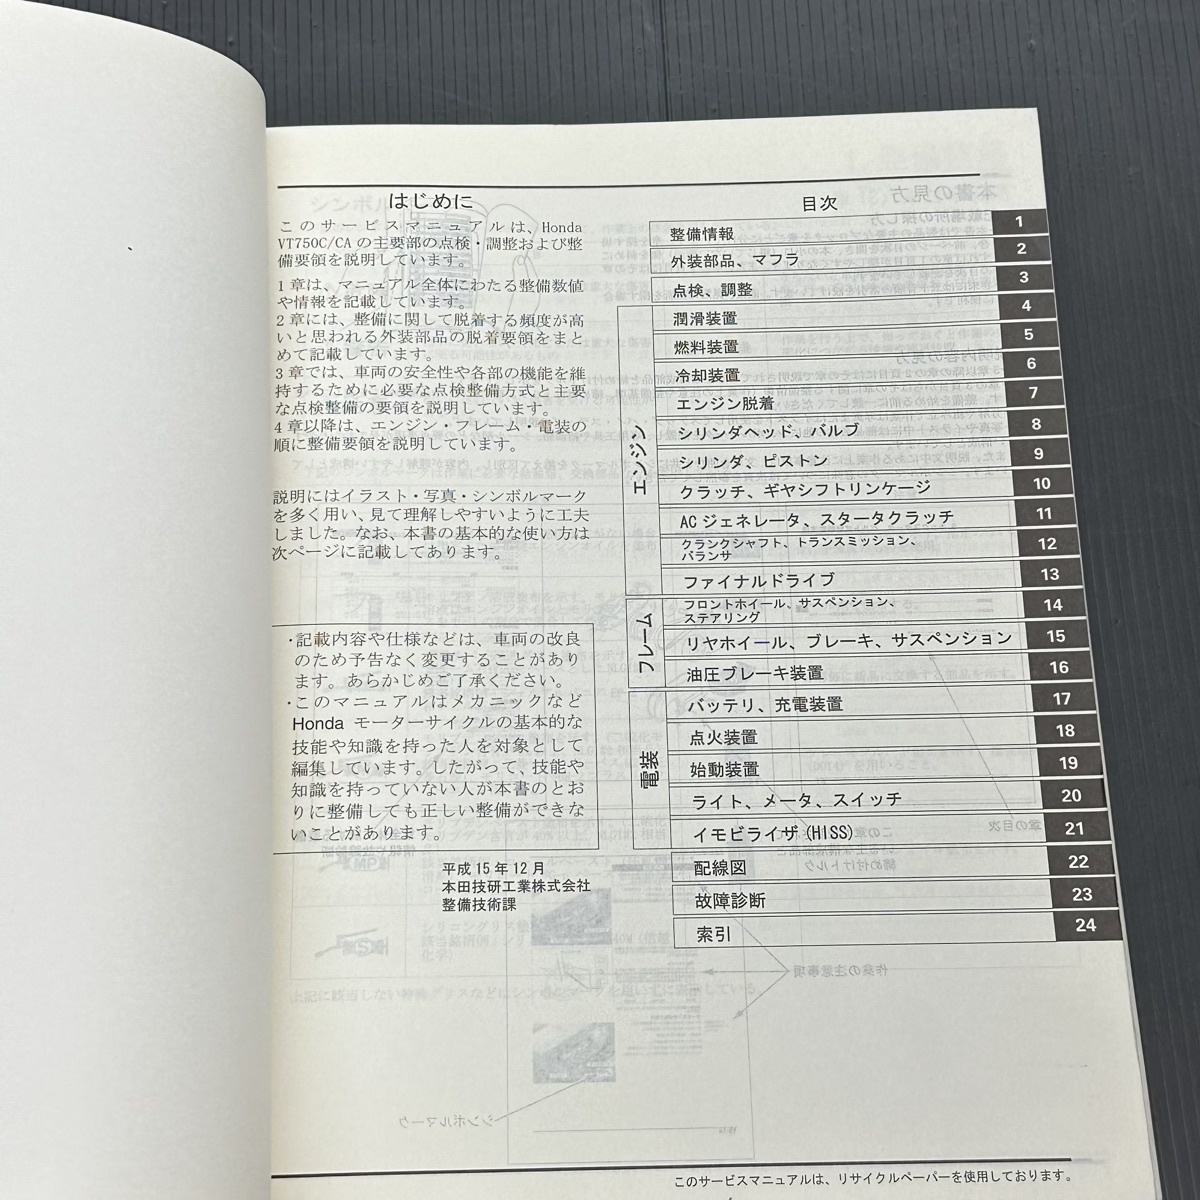 はじめに
このサービスマニュアルは、Honda
VT750C/CAの主要部の点検・調整および整
備要領を説明しています。
1章は、マニュアル全体にわたる整備数値
や情報を記載しています。
2章には、整備に関して脱着する頻度が高
いと思われる外装部品の脱着要領をまと
めて記載しています。
3章では、車両の安全性や各部の機能を維
持するために必要な点検整備方式と主要
な点検整備の要領を説明しています。
4章以降は、エンジン・フレーム・電装の
順に整備要領を説明しています。
説明にはイラスト・写真・シンボルマーク
を多く用い、見て理解しやすいように工夫
しました。なお、本書の基本的な使い方は
次ページに記載してあります。
・記載内容や仕様などは、車両の改良
のため予告なく変更することがあり
ます。あらかじめご了承ください。
・このマニュアルはメカニックなど
Honda モーターサイクルの基本的な
技能や知識を持った人を対象として
編集しています。したがって、技能や
知識を持っていない人が本書のとお
りに整備しても正しい整備ができな
いことがあります。
平成15年12月
本田技研工業株式会社
整備技術課
目次
整備情報 1
外装部品、マフラ 2
点検、調整 3
エンジン
潤滑装置 4
燃料装置 5
冷却装置 6
エンジン脱着 7
シリンダヘッド、バルブ 8
シリンダ、ピストン 9
クラッチ、ギヤシフトリンケージ 10
ACジェネレータ、スタータクラッチ 11
クランクシャフト、トランスミッション、
バランサ 12
ファイナルドライブ 13
フレーム
フロントホイール、サスペンション、
ステアリング 14
リヤホイール、ブレーキ、サスペンション 15
油圧ブレーキ装置 16
電装
バッテリ、充電装置 17
点火装置 18
始動装置 19
ライト、メータ、スイッチ 20
イモビライザ(HISS) 21
配線図 22
故障診断 23
索引 24
このサービスマニュアルは、リサイクルペーパーを使用しております。